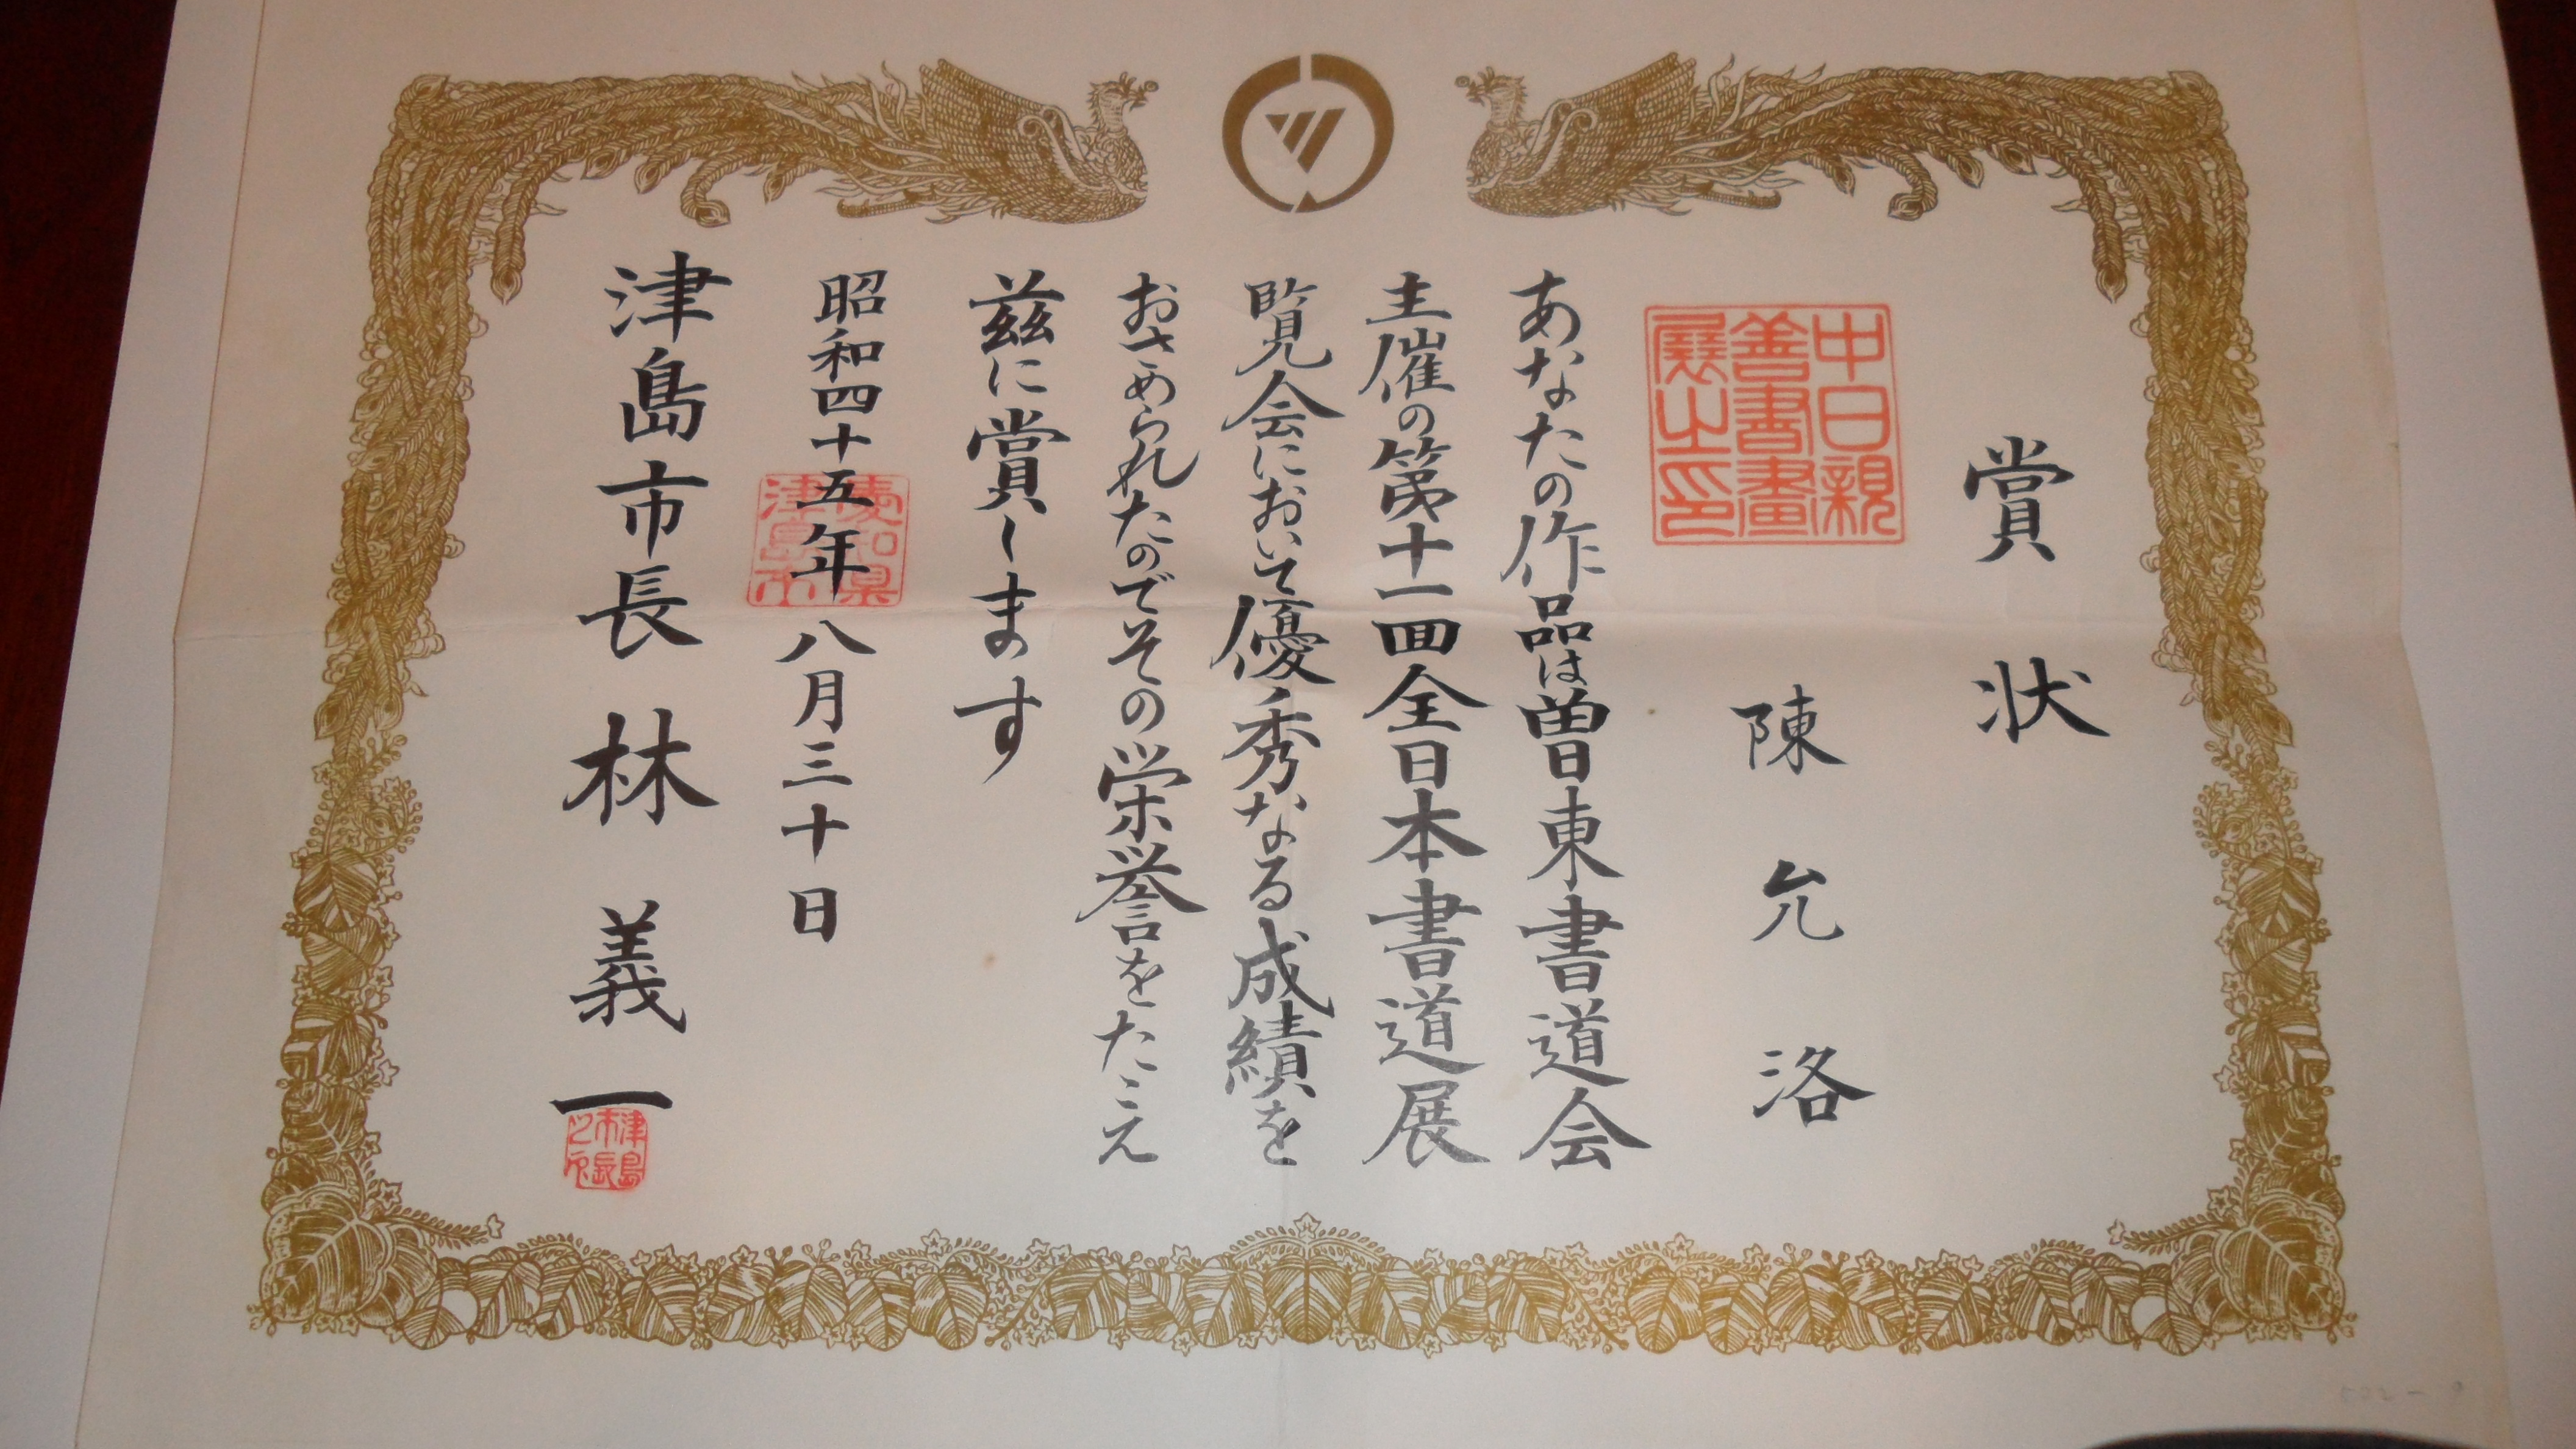 賞状
中日親
善書畫
展之印
陳允洛
あなたの作品は曽東書道会
主催の第十一回全日本書道展
覧会において優秀なる成績を
おさめられたのでその栄誉をたゝえ
茲に賞します
昭和四十五年八月三十日
愛知県
津島市
津島市長 林 義一
津島
市長
之印